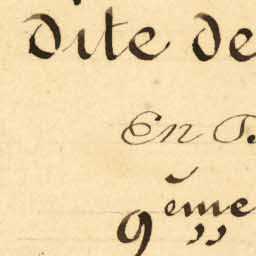 dite de
En T.
9ème